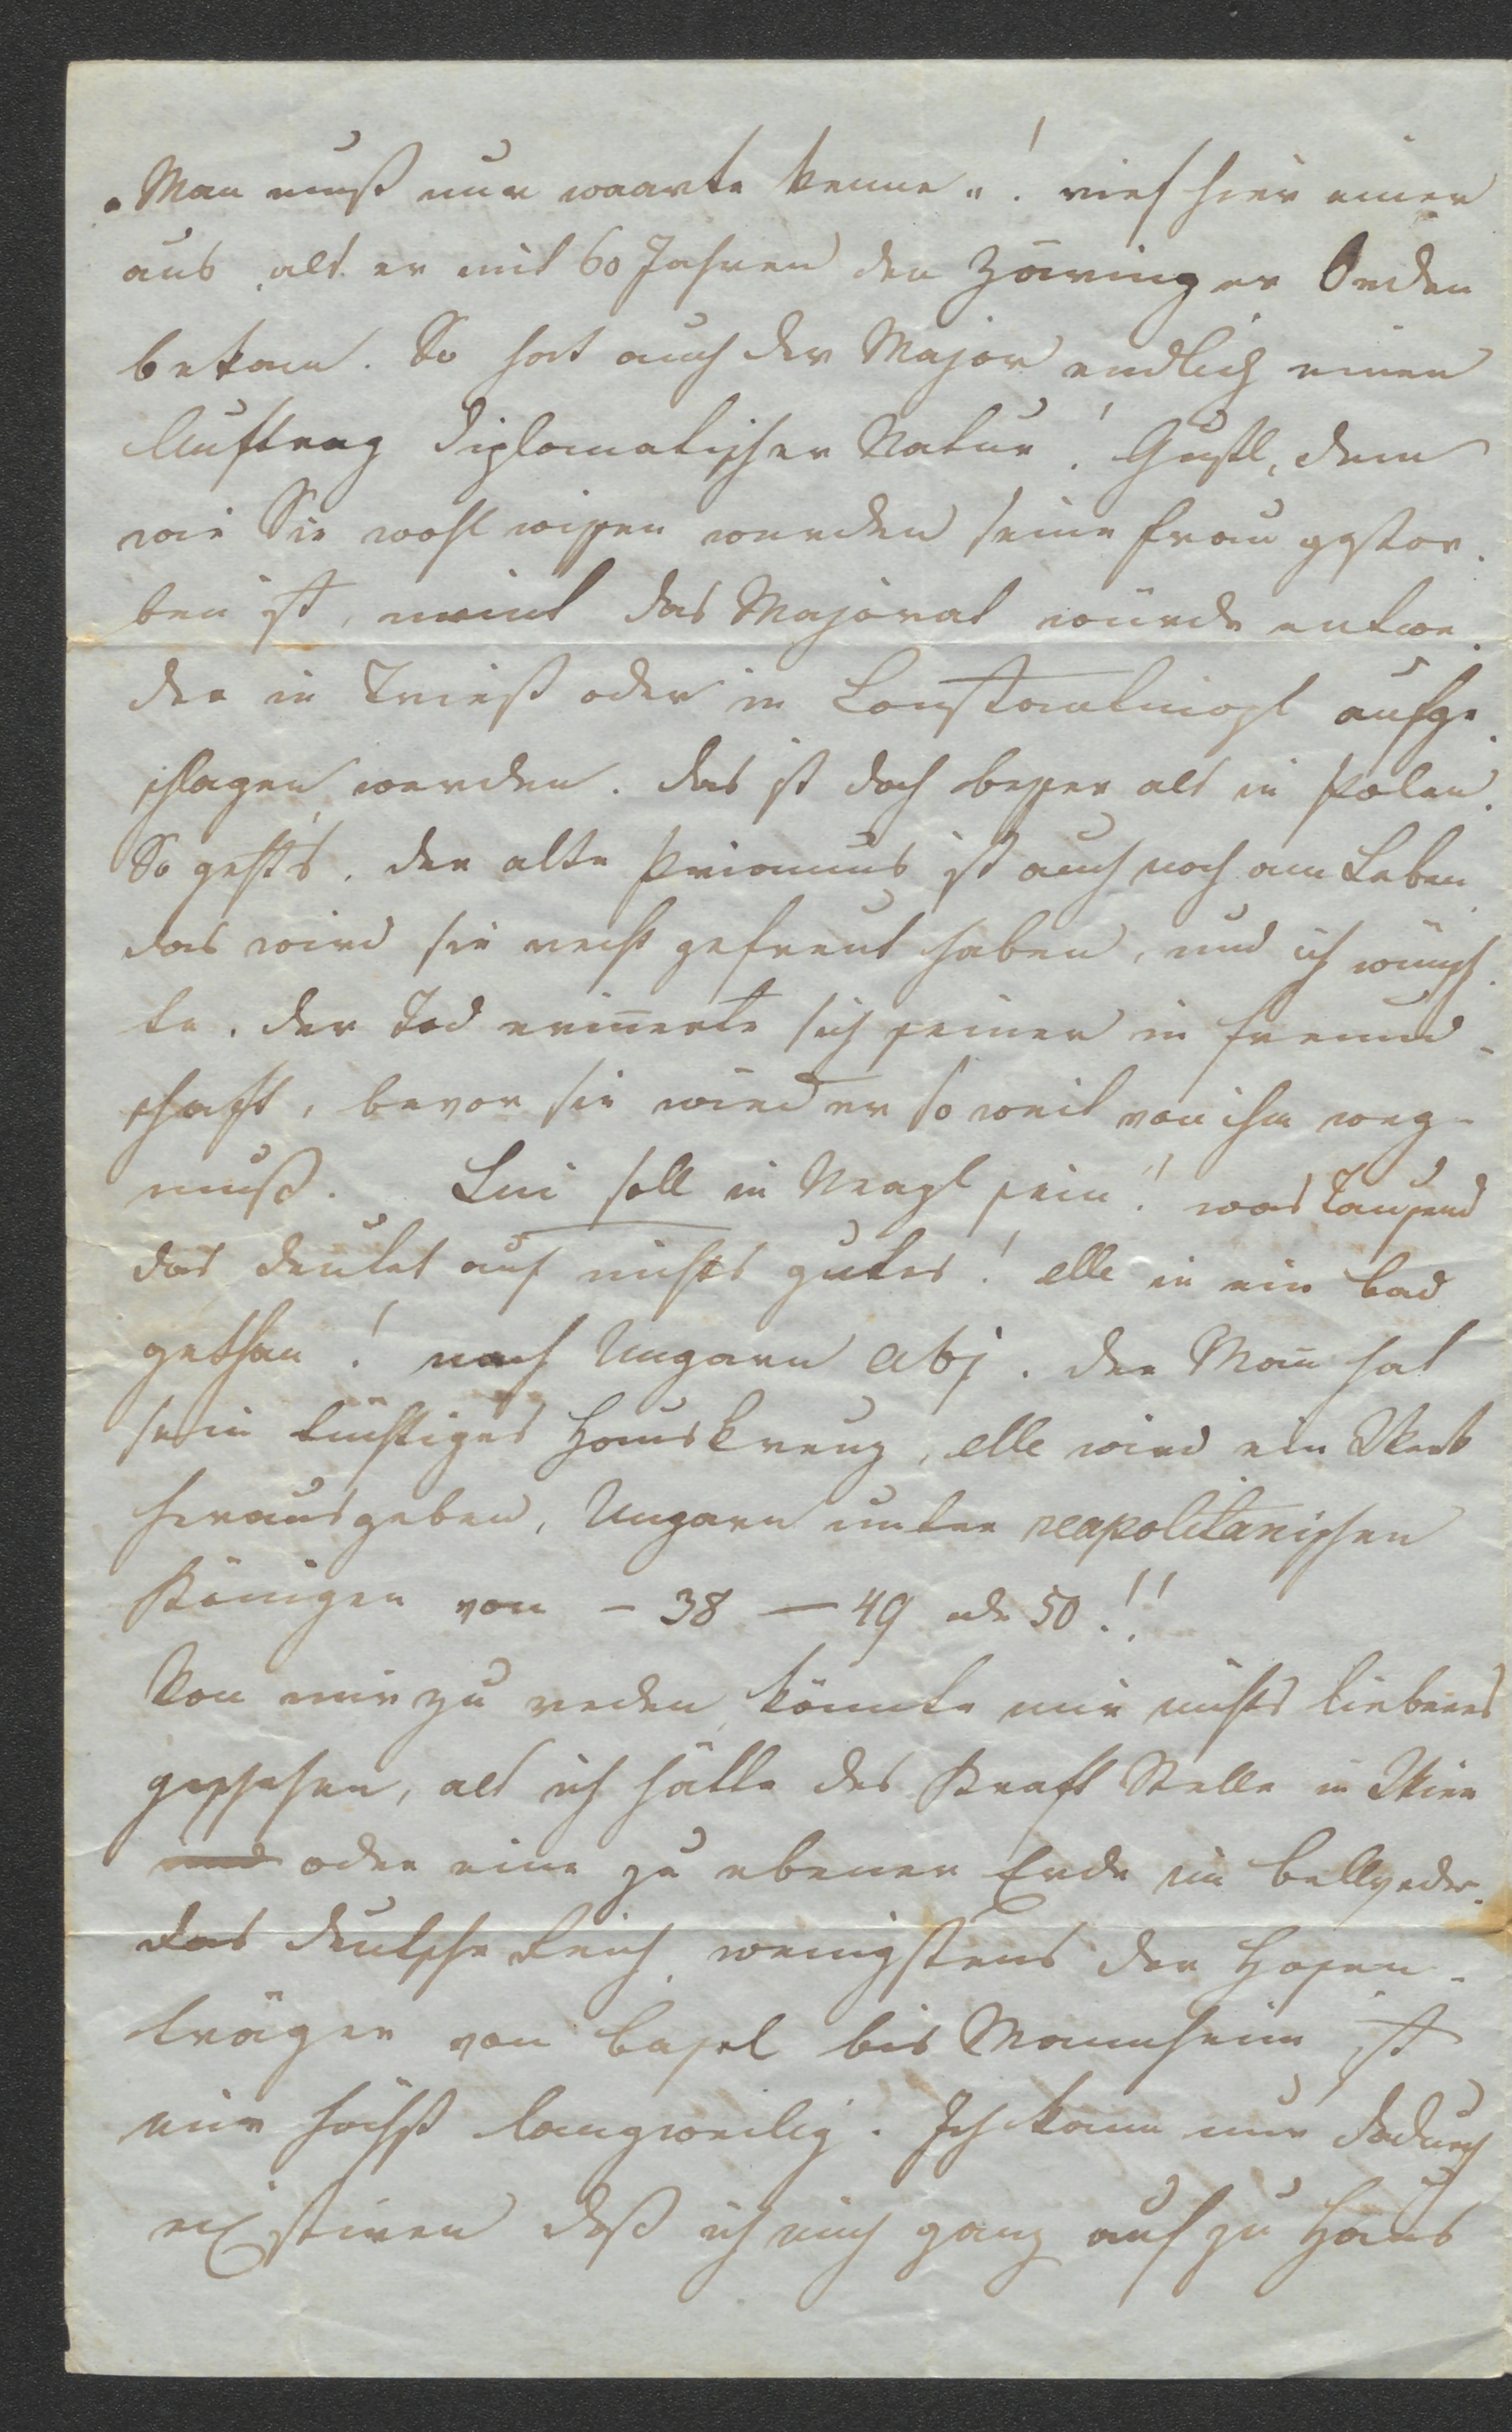 „Man muß nur waarte kenne"! rief hier einer
aus, als er mit 60 Jahren den Zäringer Orden
bekam. So hat auch der Major endlich einen
Auftrag diplomatischer Natur! Gustl, dem
wie Sie wohl wissen werden seine Frau gestor-
ben ist, meint das Majorat würde entwe-
der in Triest oder in Constantinopl aufge-
schlagen werden. Das ist doch besser als in Polen.
So geht's. Der alte Priamus ist auch noch am Leben
das wird sie recht gefreut haben, und ich wünsch-
te, der Tod erin̄erte sich seiner in Freund-
schaft, bevor sie wieder so weit von ihm weg-
muß. Lui soll in Neapl sein! was Tausend
das deutet auf nichts gutes! elle in ein Bad
gethan! nach Ungarn abj. Der Man̄ hat
sein tüchtiges Hauskreuz, elle wird ein Werk
herausgeben, Ungarn unter neapolitanischen
Königen von – 38 – 49 od 50!!
Von mir zu reden, könnte mir nichts lieberes
geschehen, als ich hätte des Kraft Stelle in Wien
und oder eine zu ebener Erde im Bellveder.
Das deutsche Reich, wenigstens der Hosen-
träger von Basel bis Mannheim ist
mir höchst langweilig. Ich kann nur dadurch
existiren daß ich mich ganz auf zu Haus